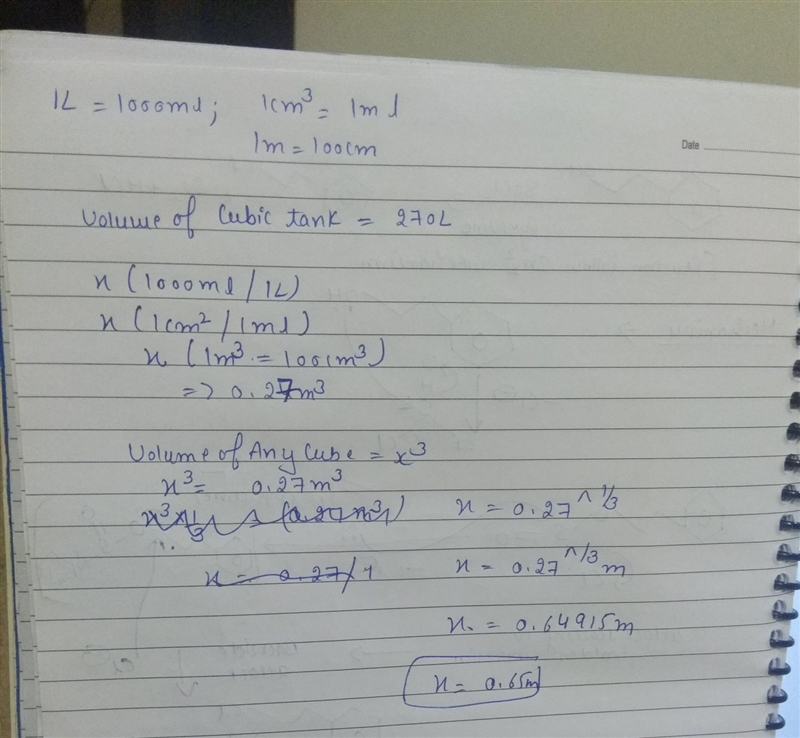 1L = 1000ml; 1cm³ = 1ml
1m = 100cm
Date
Volume of Cubic tank = 270L
x (1000ml / 1L)
x (1cm² / 1ml)
x (1m³ = 100cm³)
=> 0.27m³
Volume of Any Cube = x³
x³ = 0.27m³
x = 0.27^1/3
x = 0.27/1
x = 0.27^1/3 m
x. = 0.64915m
x = 0.65m